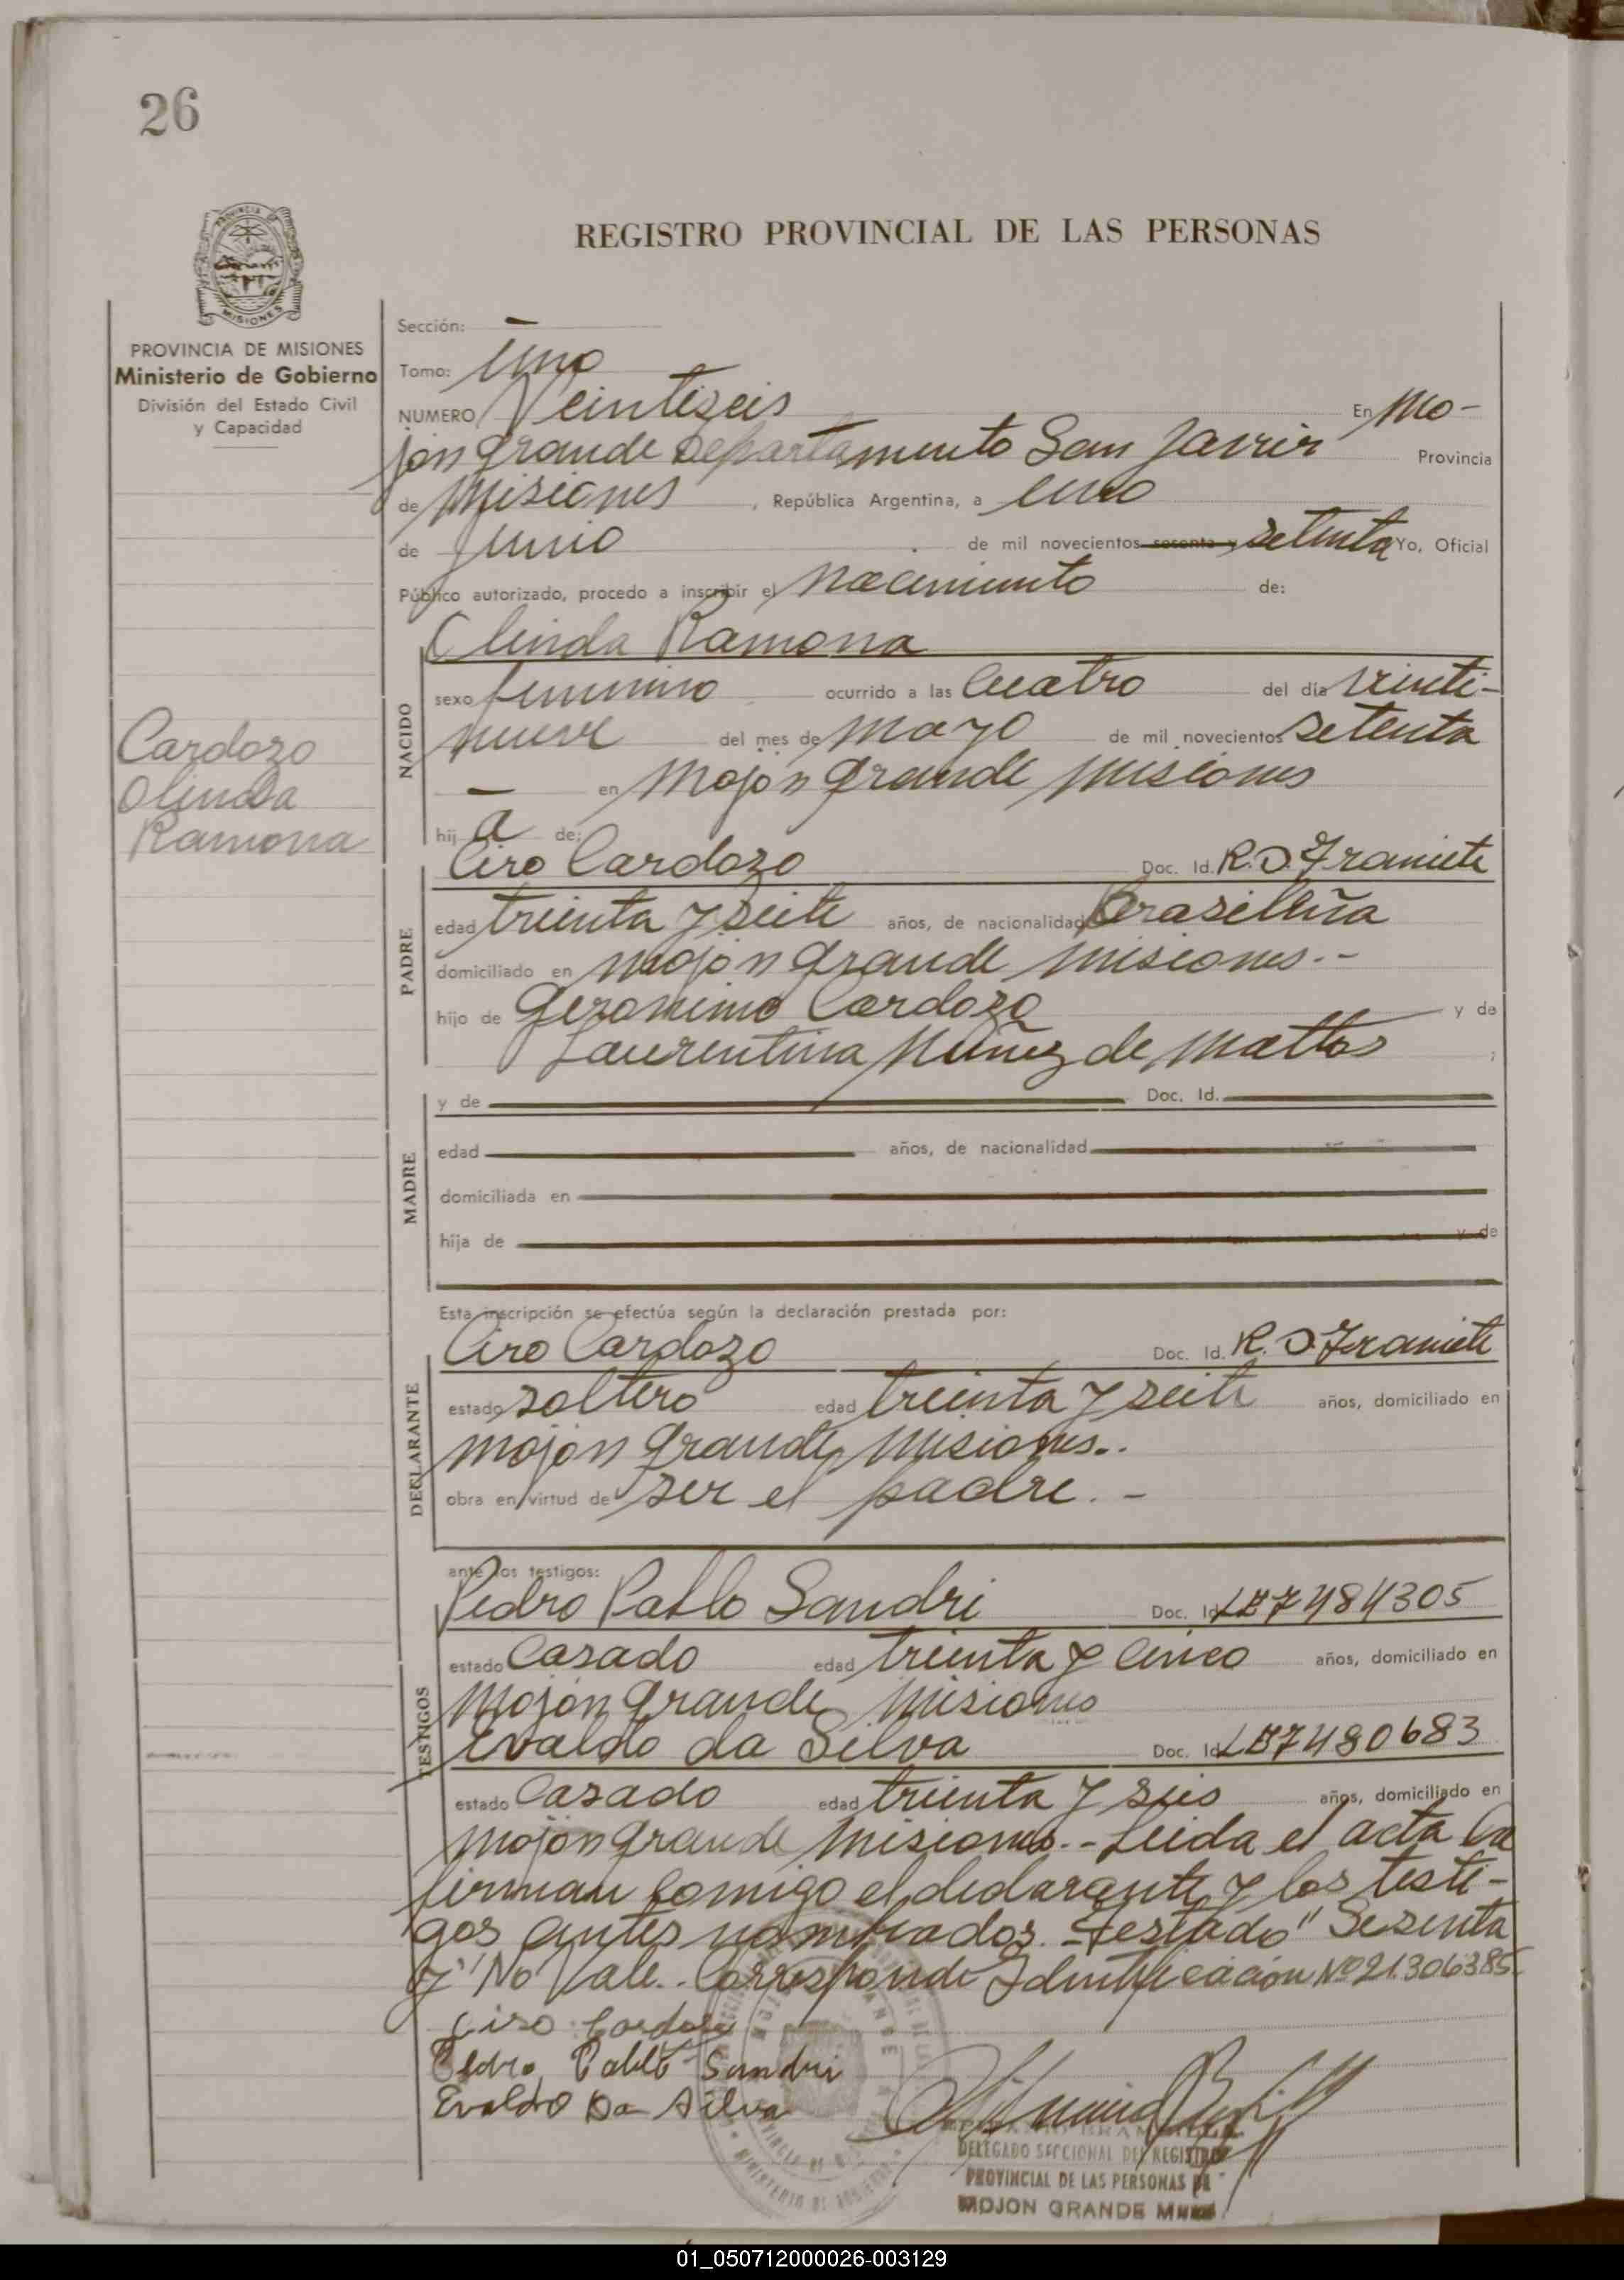 26
REGISTRO PROVINCIAL DE LAS PERSONAS
PROVINCIA
MISIONES
PROVINCIA DE MISIONES
Ministerio de Gobierno
División del Estado Civil
y Capacidad
Cardozo
Olinda
Ramona
Sección: —
Tomo: Uno
NUMERO Veintiseis En Mo-
jon grande Departamento San Javier Provincia
de Misiones, República Argentina, a uno
de Junio de mil novecientos sesenta y setenta Yo, Oficial
Público autorizado, procedo a inscribir el Nacimiento de:
Olinda Ramona
NACIDO
sexo femenino ocurrido a las Cuatro del día veinti-
nueve del mes de Mayo de mil novecientos setenta
— en Mojon grande Misiones
hij a de:
Ciro Cardozo Doc. Id. R. O. Tramite
PADRE
edad treinta y seite años, de nacionalidad Brasileña
domiciliado en Mojon grande Misiones.-
hijo de Geronimo Cardozo y de
Laurentina Nuñez de Mattos ;
MADRE
y de Doc. Id.
edad años, de nacionalidad
domiciliada en
hija de y de
Esta inscripción se efectúa según la declaración prestada por:
Ciro Cardozo Doc. Id. R. O. Tramite
DECLARANTE
estado soltero edad treinta y seite años, domiciliado en
Mojon grande Misiones..
obra en virtud de ser el padre. -
ante los testigos:
Pedro Pablo Sandri Doc. Id. LE7484305
TESTIGOS
estado Casado edad treinta y cinco años, domiciliado en
Mojon grande Misiones
Evaldo da Silva Doc. Id. LE7480683
estado Casado edad treinta y seis años, domiciliado en
Mojon grande Misiones.- Leida el acta la
firman comigo el declarante y los testi-
gos antes nombrados.- testado "Sesenta
y" No Vale.. Corresponde Identificacion Nº 21.306.385.
Ciro Cardozo
Pedro Pablo Sandri
Evaldo Da Silva
DELEGADO SECCIONAL DEL REGISTRO
PROVINCIAL DE LAS PERSONAS DE
MOJON GRANDE
01_050712000026-003129